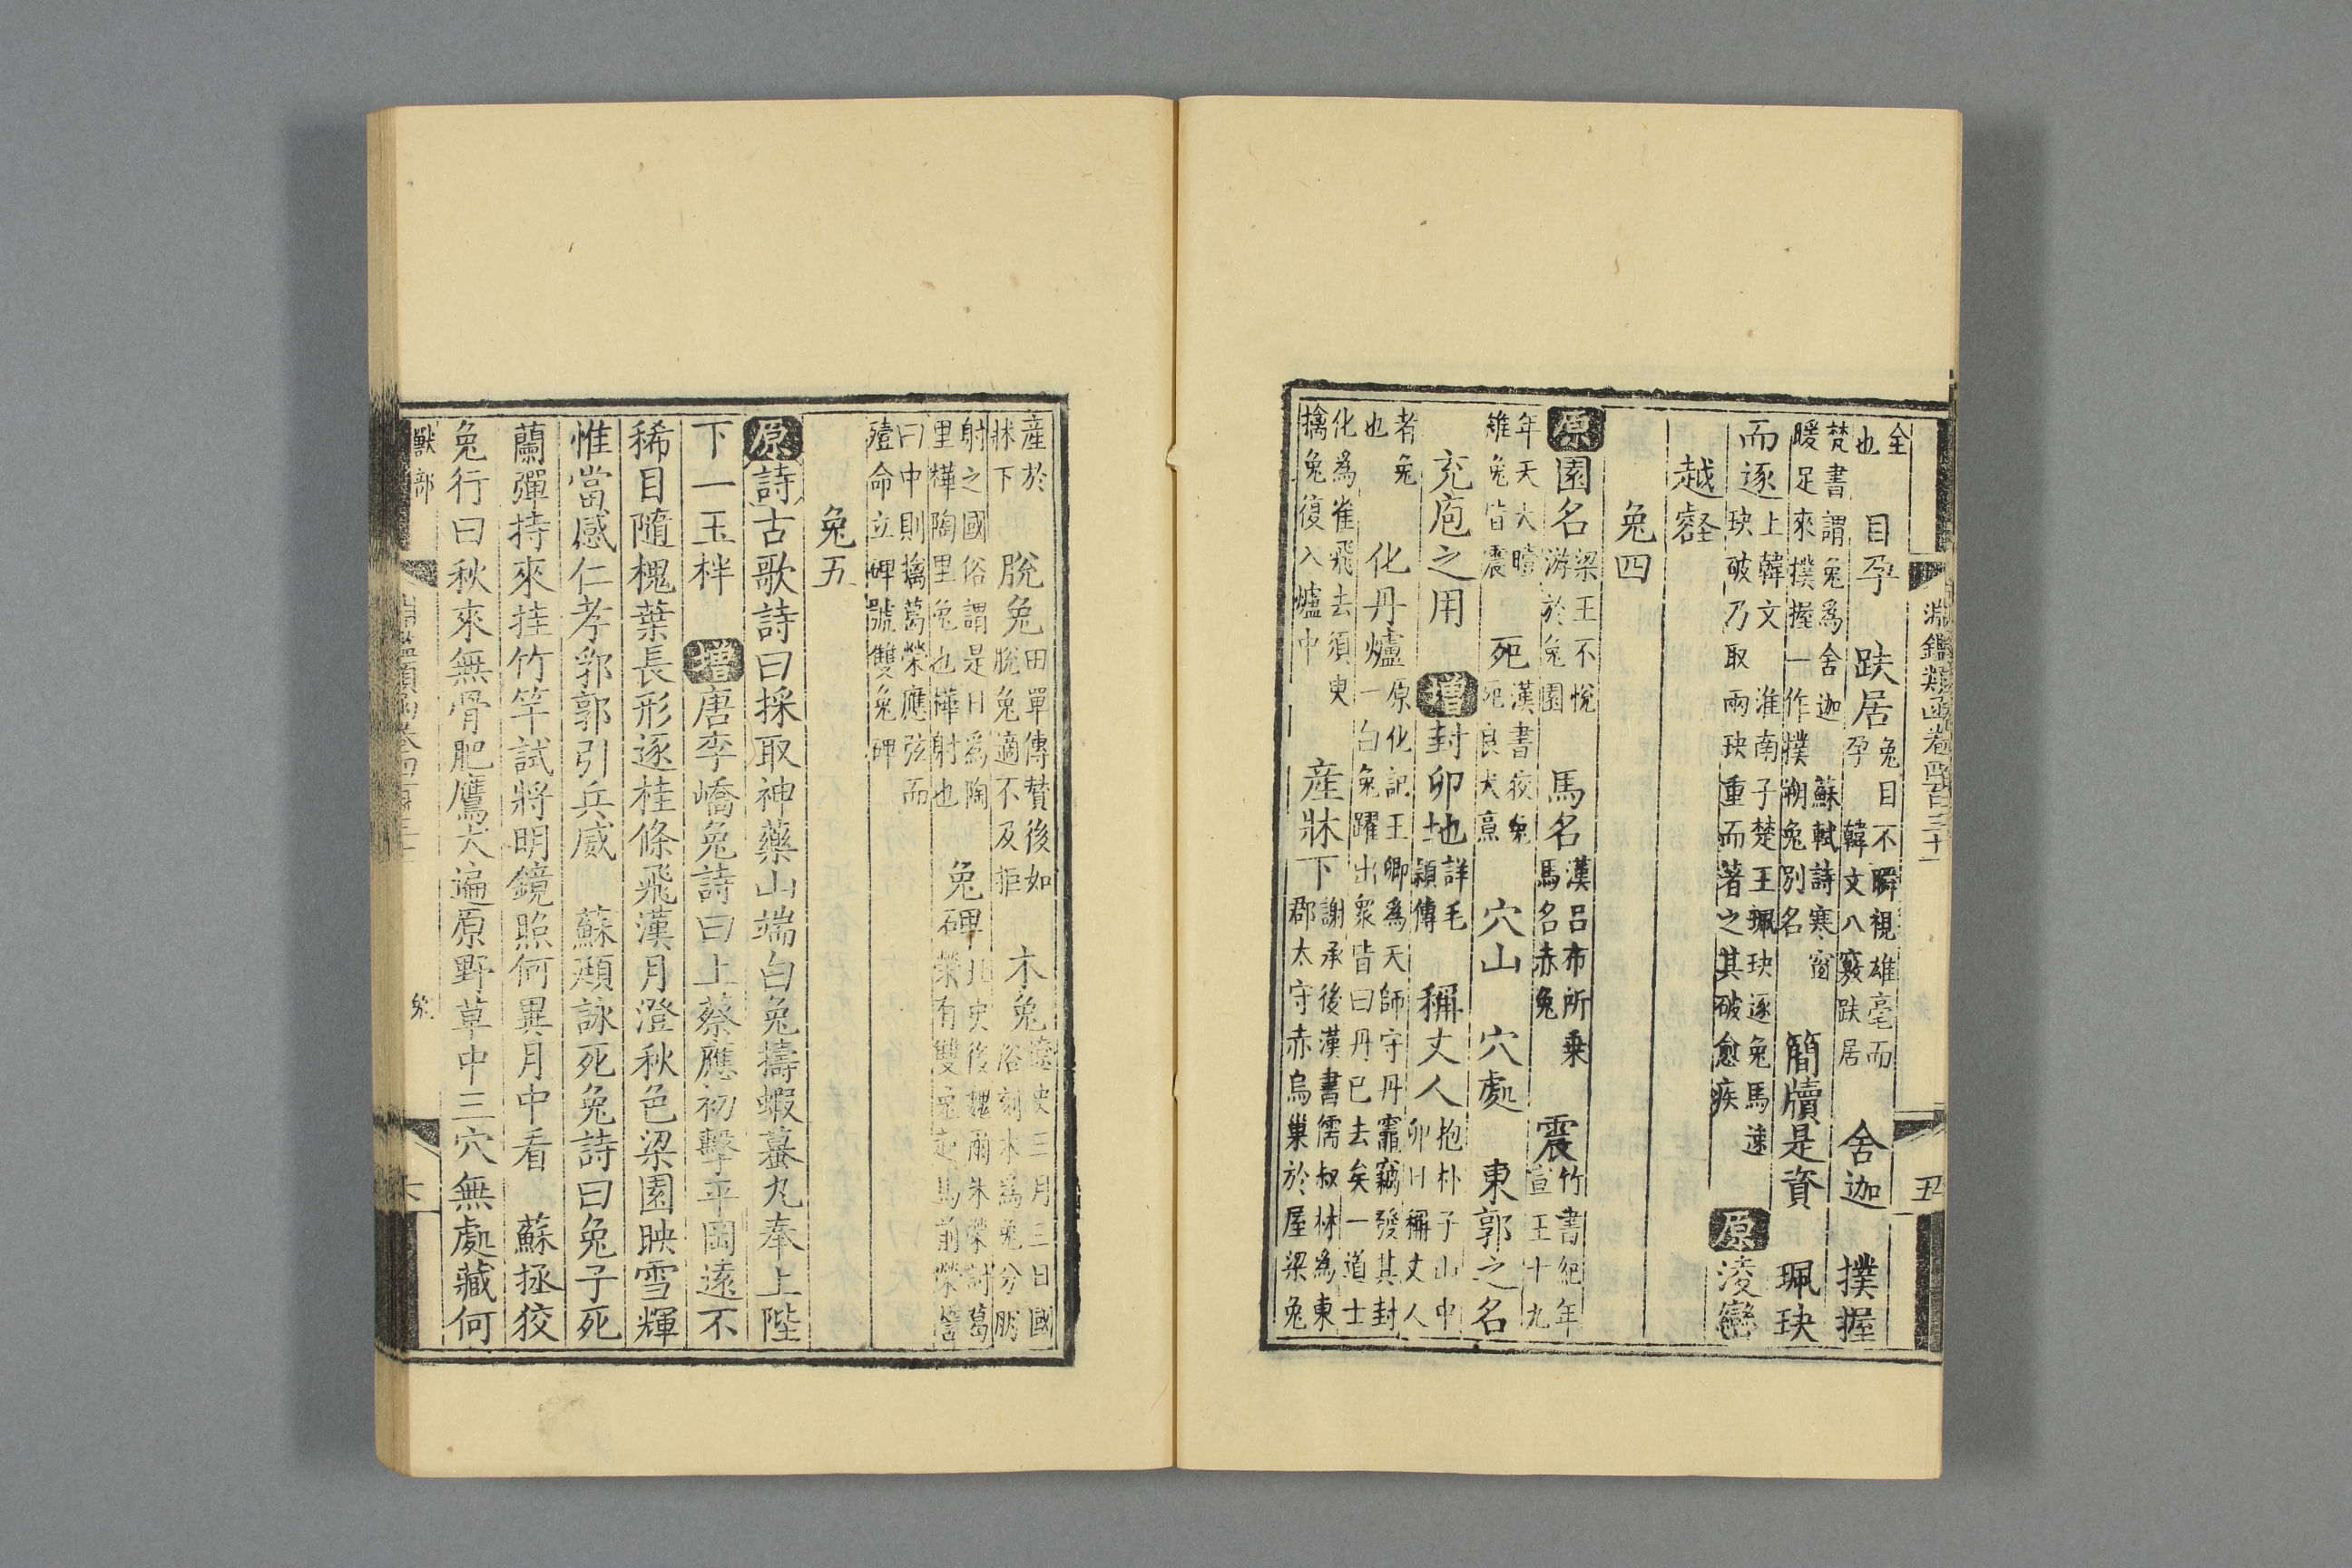 淵鑑類函卷四百三十一
五
全也 目孕 趺居 兔目不瞬視雄毫而孕 韓文八竅趺居 舍迦 撲握
梵書謂兔爲舍迦 蘇軾詩寒窗暖足來撲握一作撲朔兔別名 簡牘是資 珮玦
而逐 上韓文 淮南子楚王珮玦逐兔馬速玦破乃取兩玦重而著之其破愈疾 原 淩巒
越壑
兔四
原 園名 梁王不悅游於兔園 馬名 漢呂布所乗馬名赤兔 震 竹書紀年宣王十九
年天大曀雉兔皆震 死 漢書狡兔死良犬烹 穴山 穴處 東郭之名
充庖之用 增 封卯地 詳毛穎傳 稱丈人 抱朴子山中卯日稱丈人
者兔也 化丹爐 原化記王卿爲天師守丹竈竊發其封一白兔躍出衆皆曰丹已去矣一道士
化爲雀飛去須臾擒兔復入爐中 産牀下 謝承後漢書儒叔林爲東郡太守赤烏巢於屋梁兔
産於牀下 脫兔 田單傳贊後如脫兔適不及拒 木兔 遼史三月三日國俗刻木爲兔分朋
射之國俗謂是日爲陶里樺陶里兔也樺射也 兔碑 北史後魏爾朱榮討葛榮有雙兔起馬前榮誓
曰中則擒葛榮應弦而殪命立碑號雙兔碑
兔五
原 詩古歌詩曰採取神藥山端白兔擣蝦蟇丸奉上陛
下一玉柈 增 唐李嶠兔詩曰上蔡應初擊平岡遠不
稀目隨槐葉長形逐桂條飛漢月澄秋色梁園映雪輝
惟當感仁孝郛郭引兵威 蘇頲詠死兔詩曰兔子死
蘭彈持來挂竹竿試將明鏡照何異月中看 蘇拯狡
兔行曰秋來無骨肥鷹犬遍原野草中三穴無處藏何
獸部
兔